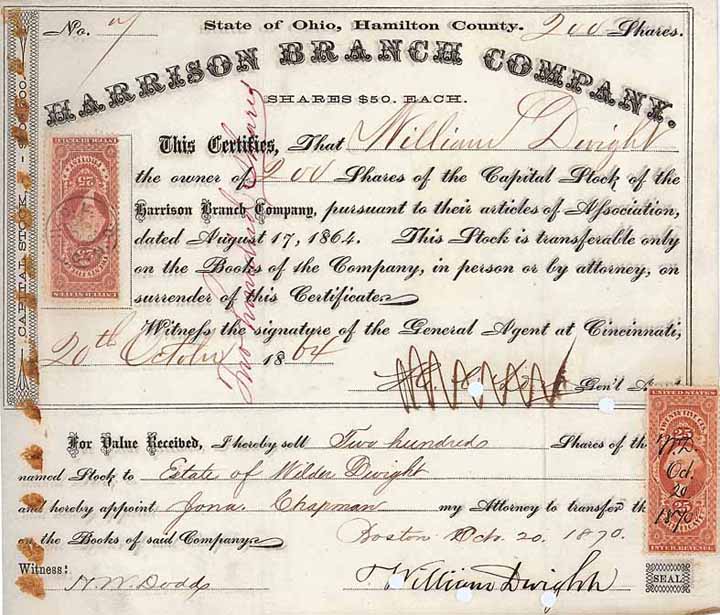 No. 7
State of Ohio, Hamilton County.
200 Shares.
HARRISON BRANCH COMPANY.
SHARES $50. EACH.
This Certifies, That William Dwight
the owner of 200 Shares of the Capital Stock of the
Harrison Branch Company, pursuant to their articles of Association,
dated August 17, 1864. This Stock is transferable only
on the Books of the Company, in person or by attorney, on
surrender of this Certificate.
Witness the signature of the General Agent at Cincinnati,
20th October 1864
Gen'l
Two Hundred Shares
CAPITAL STOCK
25
25
For Value Received, I hereby sell Two hundred Shares of the
named Stock to Estate of Wilder Dwight
and hereby appoint Jona. Chapman my Attorney to transfer the
on the Books of said Company.
Boston Oct. 20. 1870.
Witness:
H. W. Dodd
William Dwight
SEAL
UNITED STATES
25 25
W.D.
Oct.
20
1870
INTER. REVENUE